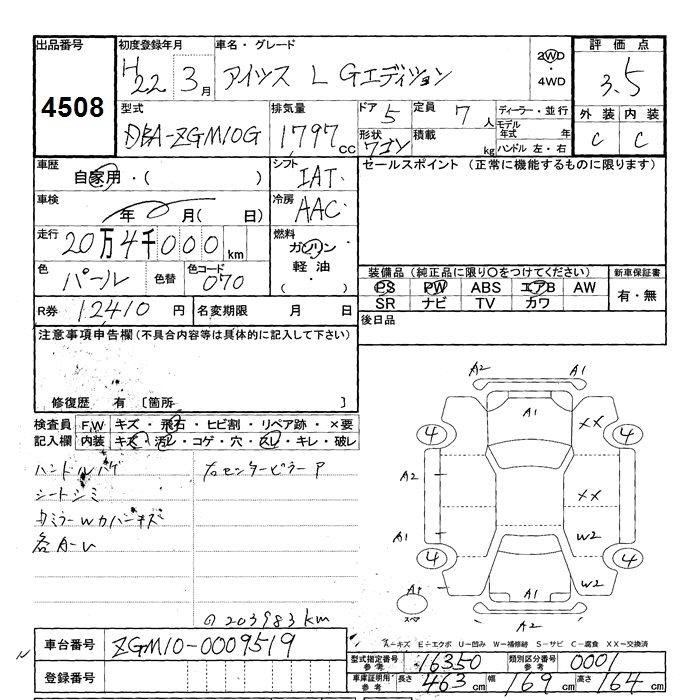 出品番号 初度登録年月 車名・グレード 評価点
4508 H22 3月 アイシス L Gエディション 2WD・4WD 3.5
型式 排気量 ドア 5 定員 7人 ディーラー・並行 外装 内装
DBA-ZGM10G 1797cc 形状 ワゴン 積載 kg モデル年式 年 ハンドル 左・右 C C
車歴 自家用・( ) シフト IAT セールスポイント (正常に機能するものに限ります)
車検 年 月( 日) 冷房 AAC
走行 20万4千000km 燃料 ガソリン 軽油 ( ・ )
色 パール 色替 色コード 070 装備品 (純正品に限り○をつけてください) 新車保証書
PS PW ABS エアB AW 有・無
SR ナビ TV カワ
R券 12410円 名変期限 月 日 後日品
注意事項申告欄 (不具合内容等は具体的に記入して下さい)
修復歴 有 [箇所 ]
検査員記入欄 F.W キズ・飛石・ヒビ割・リペア跡・×要
内装 キズ・汚レ・コゲ・穴・スレ・キレ・破レ
ハンドルハゲ 右センターピラーP
シートシミ
カバーキズ
各A-U
203983km
A2 A1
A1 XX
4 4
A2
XX
A1 W2
4 4
W2
A1 A1
スペア A2
A-キズ E-エクボ U-凹み W-補修跡 S-サビ C-腐食 XX-交換済
車台番号 ZGM10-0009519 型式指定番号 参考 16350 類別区分番号 参考 0001
登録番号 車庫証明用 参考 長さ 463cm 幅 169cm 高さ 164cm